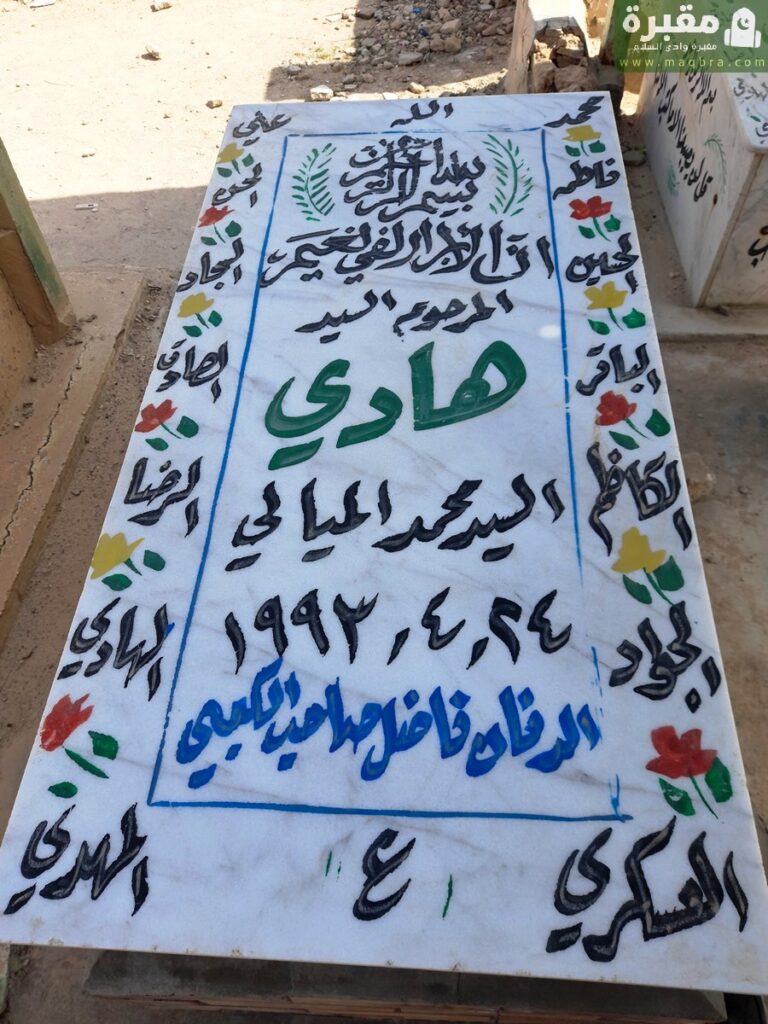 مقبرة
مقبرة وادي السلام
www.maqbra.com
محمد الله علي
بسم الله الرحمن الرحيم
ان الابرار لفي نعيم
المرحوم السيد
هادي
السيد محمد الميالي
٢٤ , ٤ , ١٩٩٣
الدفان فاضل صاحب الكبيسي
فاطمه
الحسن
الحسين
السجاد
الباقر
الصادق
الكاظم
الرضا
الجواد
الهادي
العسكري
ع
المهدي